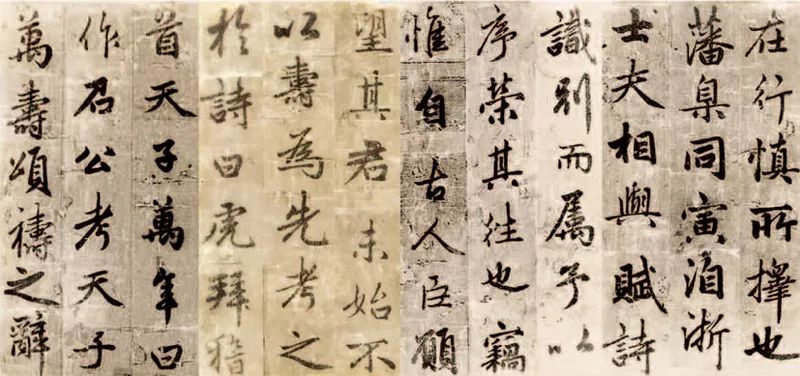 在行慎所擇也
藩臬同寅洎浙
士夫相與賦詩
識別而屬予以
序榮其往也竊
惟自古人臣願
望其君未始不
以壽為先考之
於詩曰虎拜稽
首天子萬年曰
作召公考天子
萬壽頌禱之辭